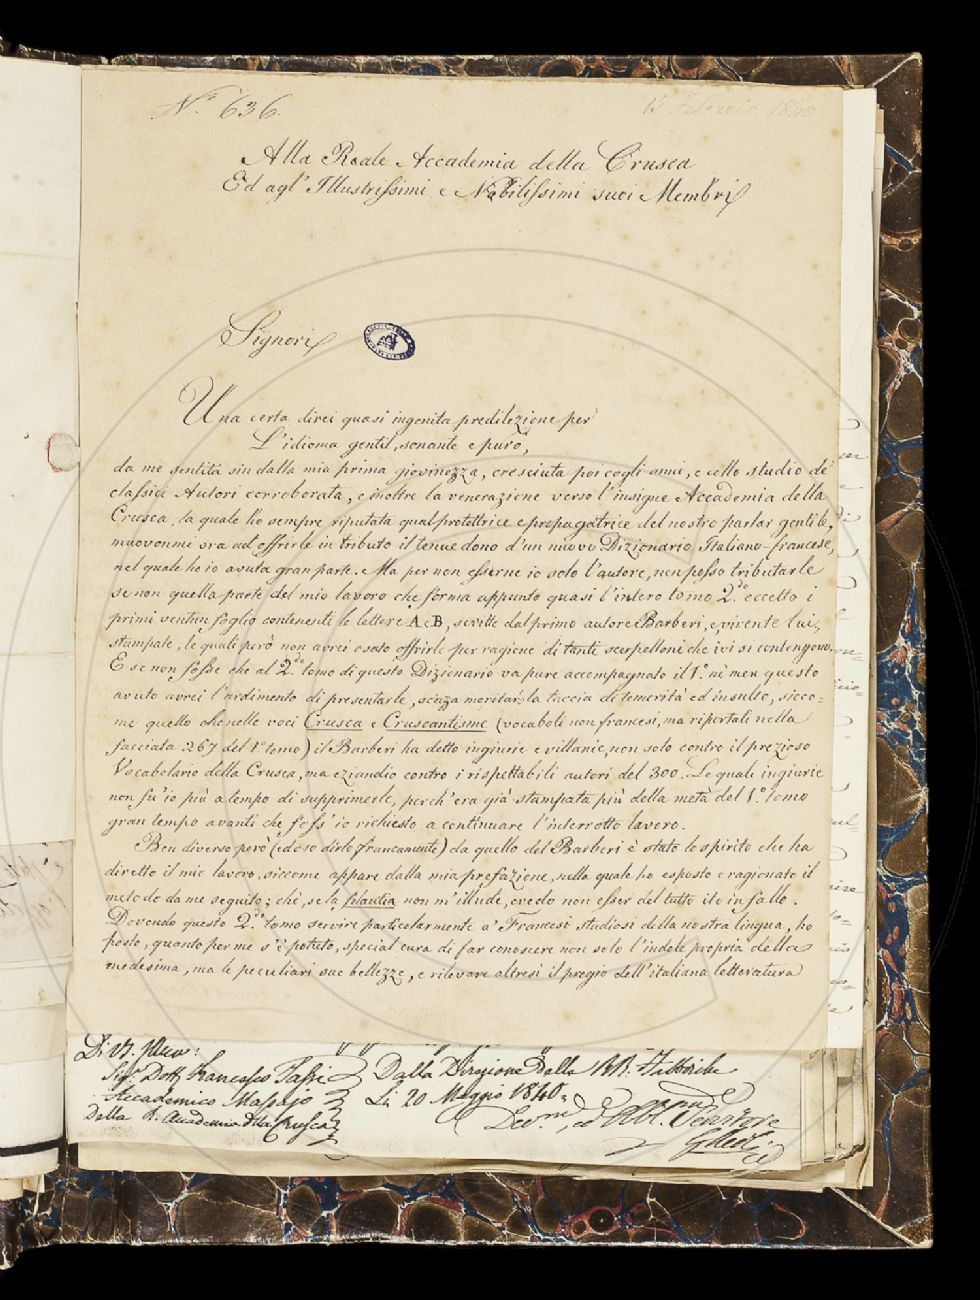 N.º 636.
15 Febbraio 1840
Alla Reale Accademia della Crusca
Ed agl' Illustrissimi e Nobilissimi suoi Membri
Signori
Una certa direi quasi ingenita predilezione per
L'idioma gentil, sonante e puro,
da me sentita sin dalla mia prima giovinezza, cresciuta poi cogli anni, e collo studio de'
classici Autori corroborata, e inoltre la venerazione verso l'insigne Accademia della
Crusca, la quale ho sempre riputata qual protettrice e propagatrice del nostro parlar gentile,
muovonmi ora ad offrirle in tributo il tenue dono d'un nuovo Dizionario Italiano-francese,
nel quale ho io avuta gran parte. Ma per non esserne io solo l'autore, non posso tributarle
se non quella parte del mio lavoro che forma appunto quasi l'intero tomo 2.do eccetto i
primi ventun foglio contenente le lettere A e B, scritte dal primo autore Barberi, e, vivente lui,
stampate, le quali però non avrei osato offrirle per ragione di tanti scerpelloni che ivi si contengono.
E se non fosse che al 2.do tomo di questo Dizionario va pure accompagnato il 1.º nè men questo
avuto avrei l'ardimento di presentarle, senza meritar la taccia di temerità ed insulto, sicco-
me quello che nelle voci Crusca e Cruscantisme (vocaboli non francesi, ma riportati nella
facciata 267 del 1.º tomo) il Barberi ha detto ingiurie e villanie, non solo contro il prezioso
Vocabolario della Crusca, ma eziandio contro i rispettabili autori del 300. Le quali ingiurie
non fu' io più a tempo di supprimerle, perch'era già stampata più della metà del 1.º tomo
gran tempo avanti che foss' io richiesto a continuare l'interrotto lavoro.
Ben diverso però (ed oso dirlo francamente) da quello del Barberi è stato lo spirito che ha
diretto il mio lavoro, siccome appare dalla mia prefazione, nella quale ho esposto e ragionato il
metodo da me seguito; chè, se la filautia non m'illude, credo non esser del tutto ito in fallo.
Dovendo questo 2.do tomo servire particolarmente a' Francesi studiosi della nostra lingua, ho
posto, quanto per me s'è potuto, special cura di far conoscere non solo l'indole propria della
medesima, ma le peculiari sue bellezze, e rilevare altresì il pregio dell'italiana letteratura
Sig.r Dott. Francesco Tassi
Accademico Massajo
Della R. Accademia della Crusca
Dalla Direzione Della RR. Fabbriche
Li 20 Maggio 1840.
Dev.mo, ed Obb.mo Servitore